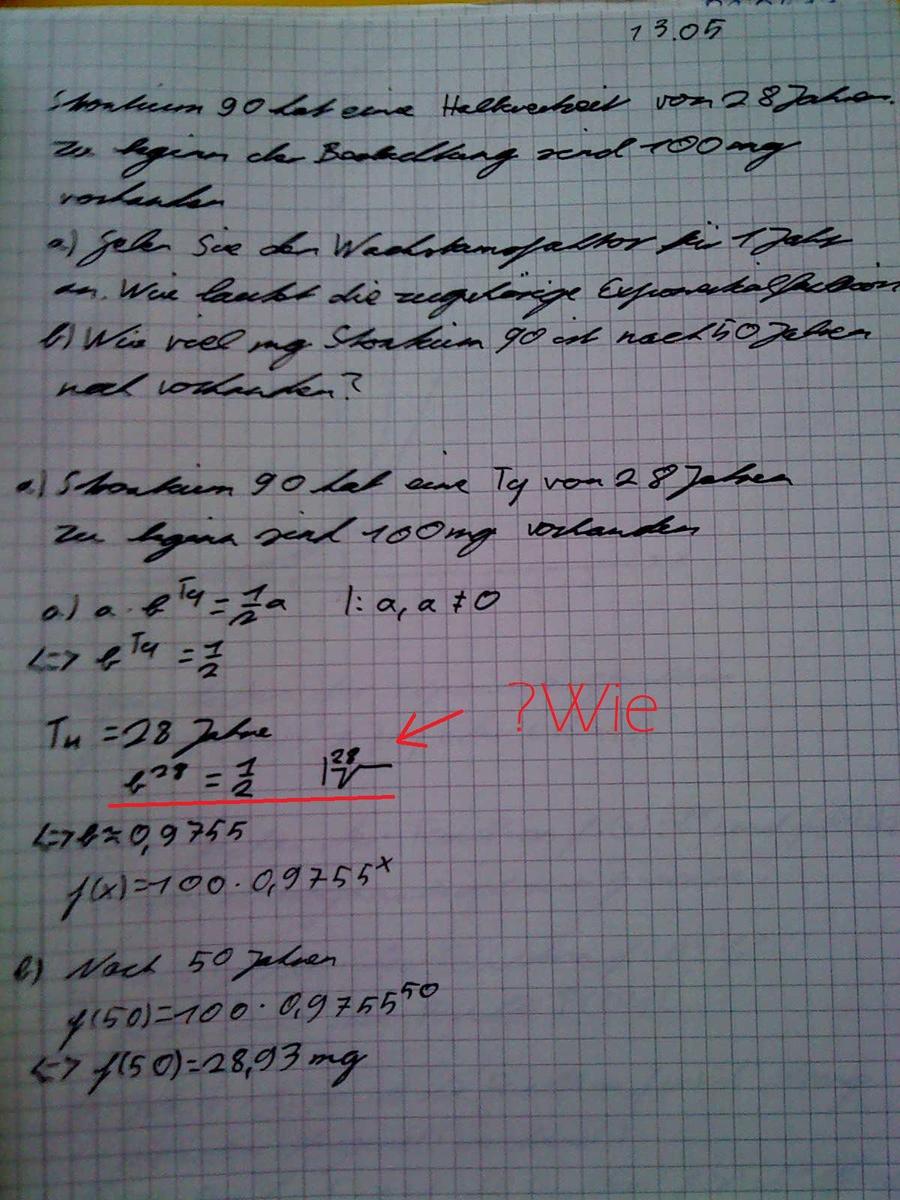 13.05
Strontium 90 hat eine Halbwertszeit von 28 Jahren.
Zu beginn der Beobachtung sind 100mg
vorhanden
a.) Geben Sie den Wachstumsfaktor für 1 Jahr
an. Wie lautet die zugehörige Exponentialfunktion
b) Wie viel mg Strontium 90 ist nach 50 Jahren
noch vorhanden?
a.) Strontium 90 hat eine TH von 28 Jahren
Zu beginn sind 100mg vorhanden
a.) a · b^TH = 1/2 a |: a, a ≠ 0
<=> b^TH = 1/2
?Wie
TH = 28 Jahre
b^28 = 1/2 |28√
<=> b ≈ 0,9755
f(x) = 100 · 0,9755^x
b) Nach 50 Jahren
f(50) = 100 · 0,9755^50
<=> f(50) = 28,93 mg